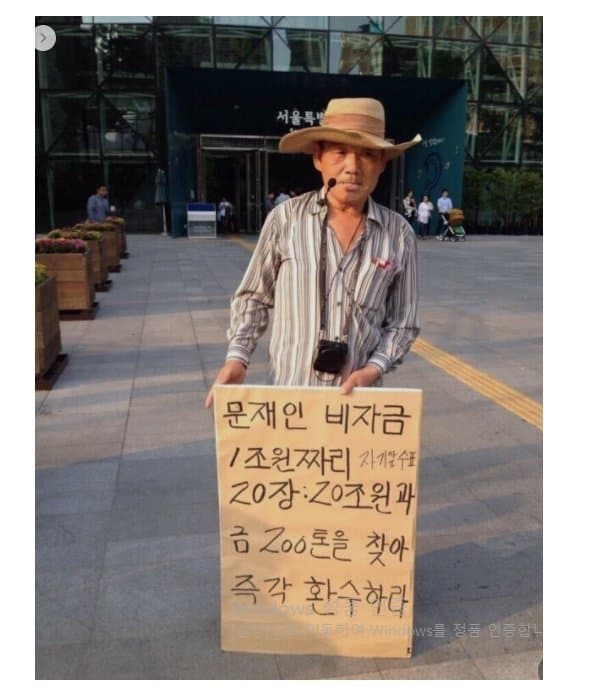 서울특별
문재인 비자금
1조원짜리 자기앞수표
20장:20조원과
금 200톤을 찾아
즉각 환수하라
Windows 정품 인증
Windows를 정품 인증합니